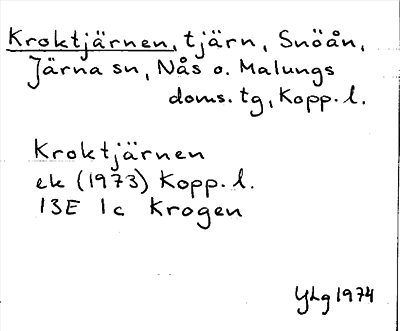 Kroktjärnen, tjärn, Snöån,
Järna sn, Nås o. Malungs
doms. tg, Kopp. l.
Kroktjärnen
ek (1973) Kopp. l.
13E 1c Krogen
YLg 1974